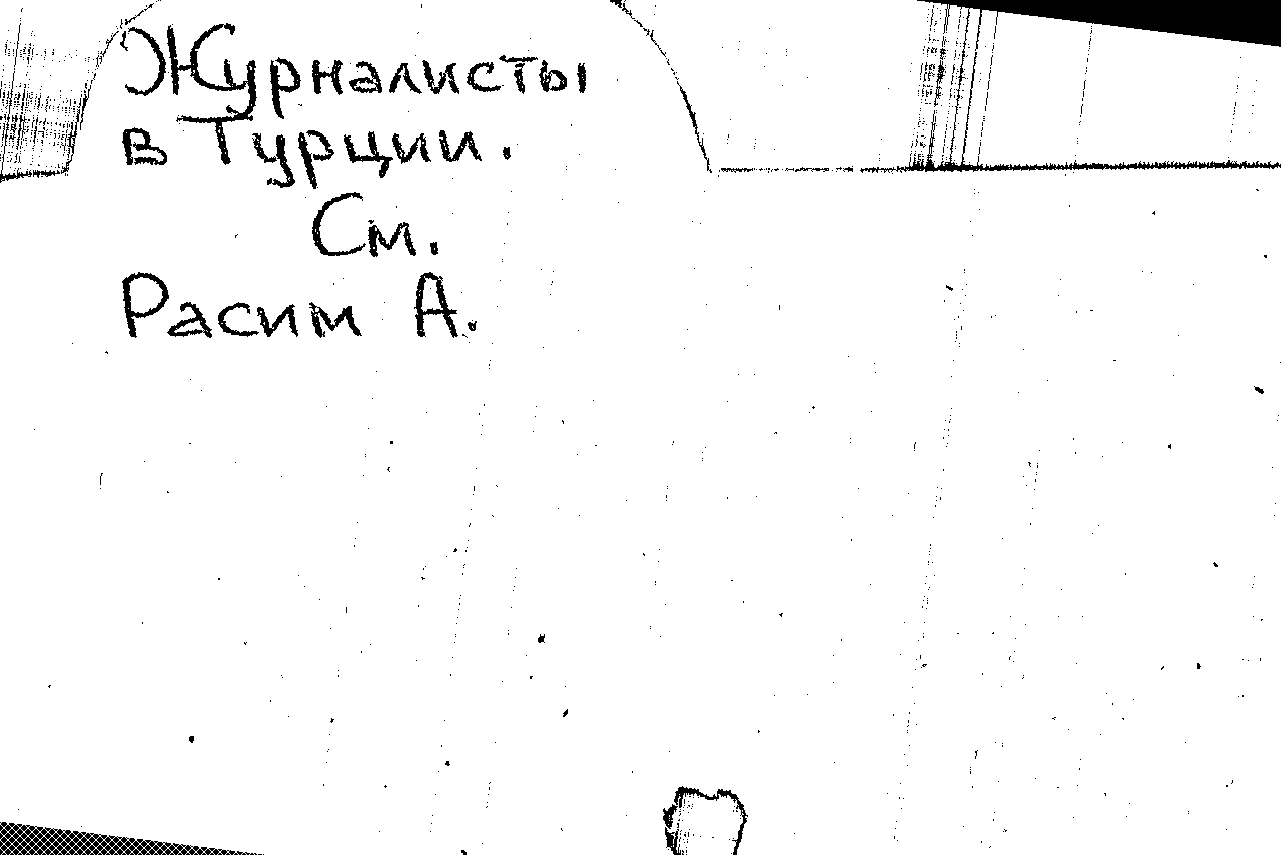 Журналисты
в Турции.
См.
Расим А.